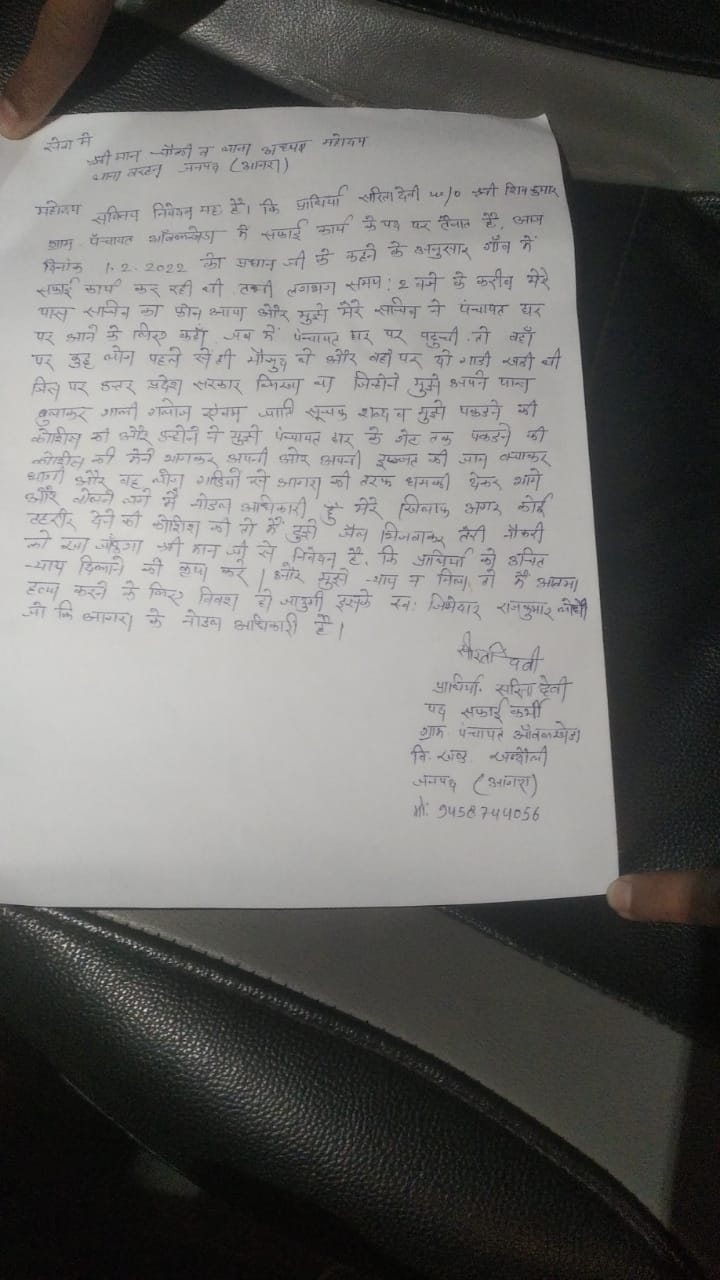 सेवा में
श्री मान चौकी व थाना अध्यक्ष महोदय
थाना बरहन जनपद (आगरा)
महोदय सविनय निवेदन यह है। कि प्रार्थिया सरिता देवी w/o श्री शिव कुमार
ग्राम पंचायत आँवलखेडा में सफाई कार्य के पद पर तैनात है, आज
दिनांक 1.2.2022 को प्रधान जी के कहने के अनुसार गाँव में
सफाई कार्य कर रही थी तभी लगभग समय: 2 बजे के करीब मेरे
पास सचिव का फोन आया और मुझे मेरे सचिव ने पंचायत घर
पर आने के लिए कहाँ जब में पंचायत घर पर पहुची तो वहाँ
पर कुछ लोग पहले से ही मौजुद थे और वहाँ पर दो गाडी खडी थी
जिस पर उत्तर प्रदेश सरकार लिखा था जिन्होने मुझे अपने पास
बुलाकर गाली गलोज एवम जाति सूचक शब्द व मुझे पकडने की
कोशिश की और उन्होने ने मुझे पंचायत घर के गेट तक पकडने की
कोशिश की मेने भागकर अपनी और अपनी इज्जत की जान बचाकर
भागी और वह लोग गाडियों से आगरा की तरफ धमकी देकर भागे
और बोलने लगे मैं नोडल अधिकारी हुँ मेरे खिलाफ अगर कोई
तहरीर देने की कोशिश की तो मैं तुझे जैल भिजवाकर तेरी नौकरी
को खा जाऊगा श्री मान जी से निवेदन है, कि प्रार्थिया को उचित
न्याय दिलाने की कृपा करे। और मुझे न्याय न मिला तो मैं आत्मा
हत्या करने के लिए विवश हो जाऊगी इसके स्व: जिम्मेदार राजकुमार लोधी
जो कि आगरा के नोडल अधिकारी है।
सरिता देवी
प्रार्थिया सरिता देवी
पद सफाई कर्मी
ग्राम पंचायत आँवलखेडा
वि. खण्ड खन्दौली
जनपद (आगरा)
मो: 9458744056